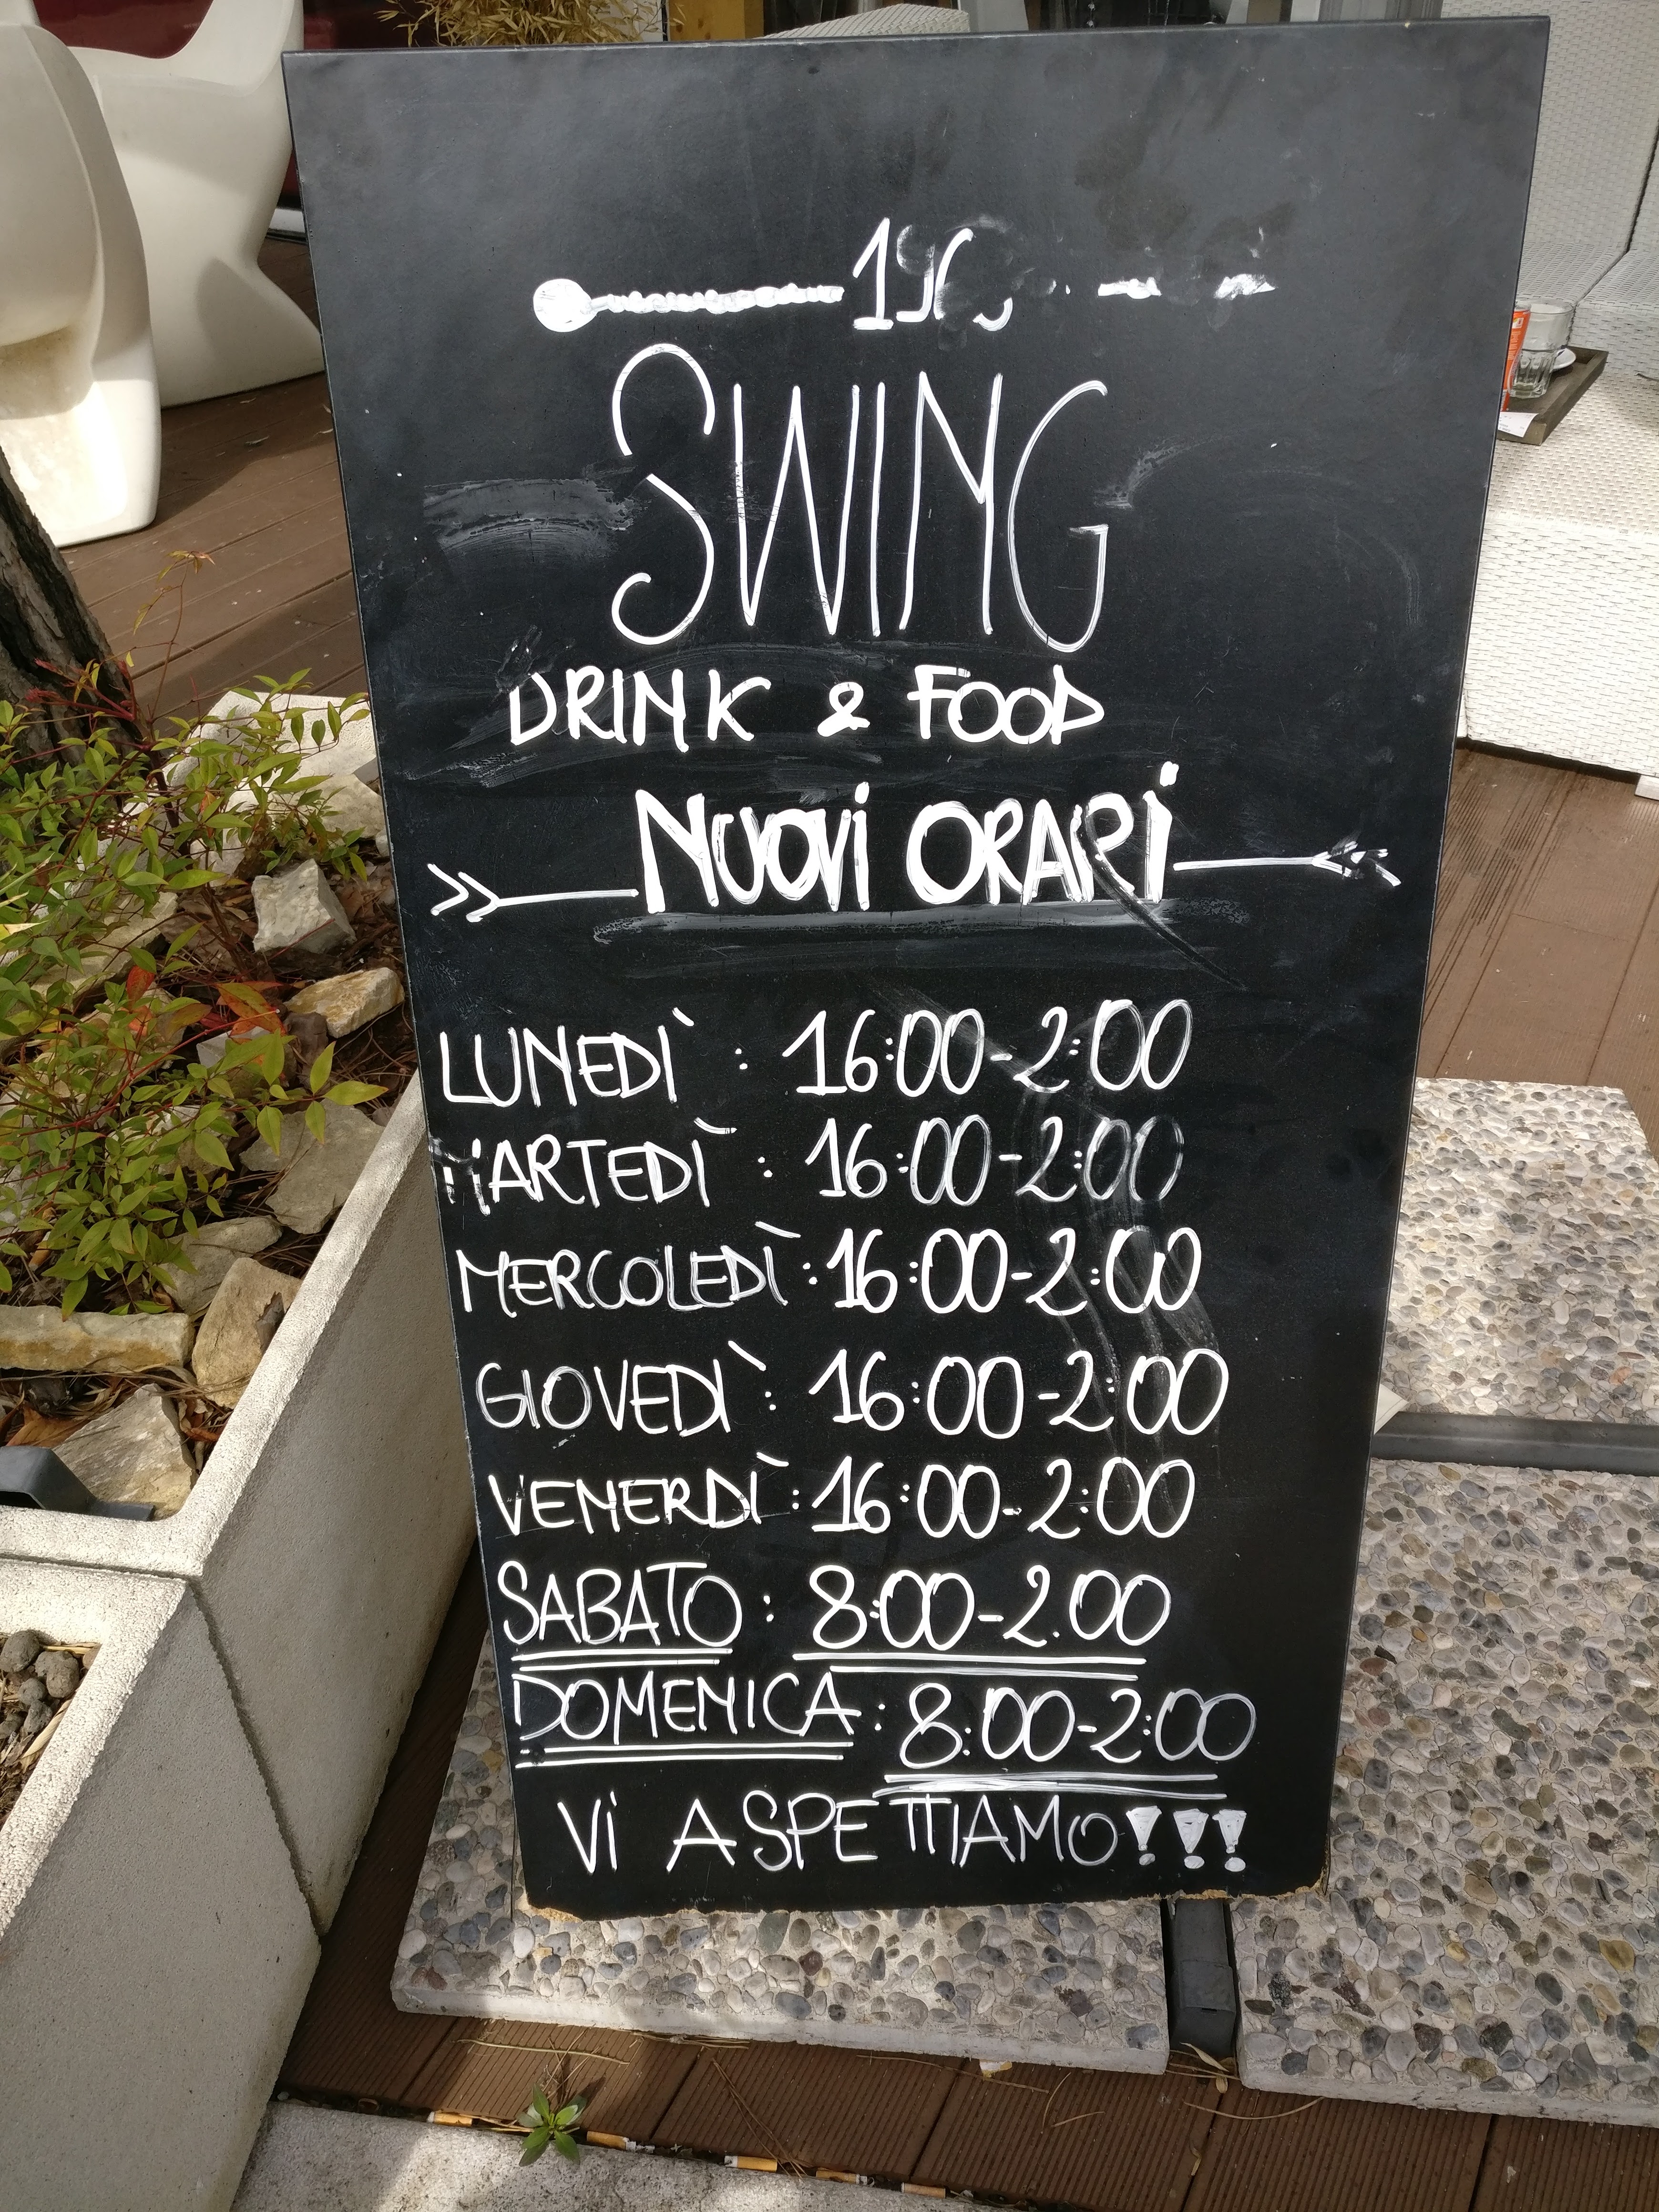 SWING
DRINK & FOOD
NUOVI ORARI
LUNEDÌ : 16:00-2:00
MARTEDÌ : 16:00-2:00
MERCOLEDÌ : 16:00-2:00
GIOVEDÌ : 16:00-2:00
VENERDÌ : 16:00-2:00
SABATO : 8:00-2.00
DOMENICA : 8:00-2:00
VI ASPETTIAMO!!!